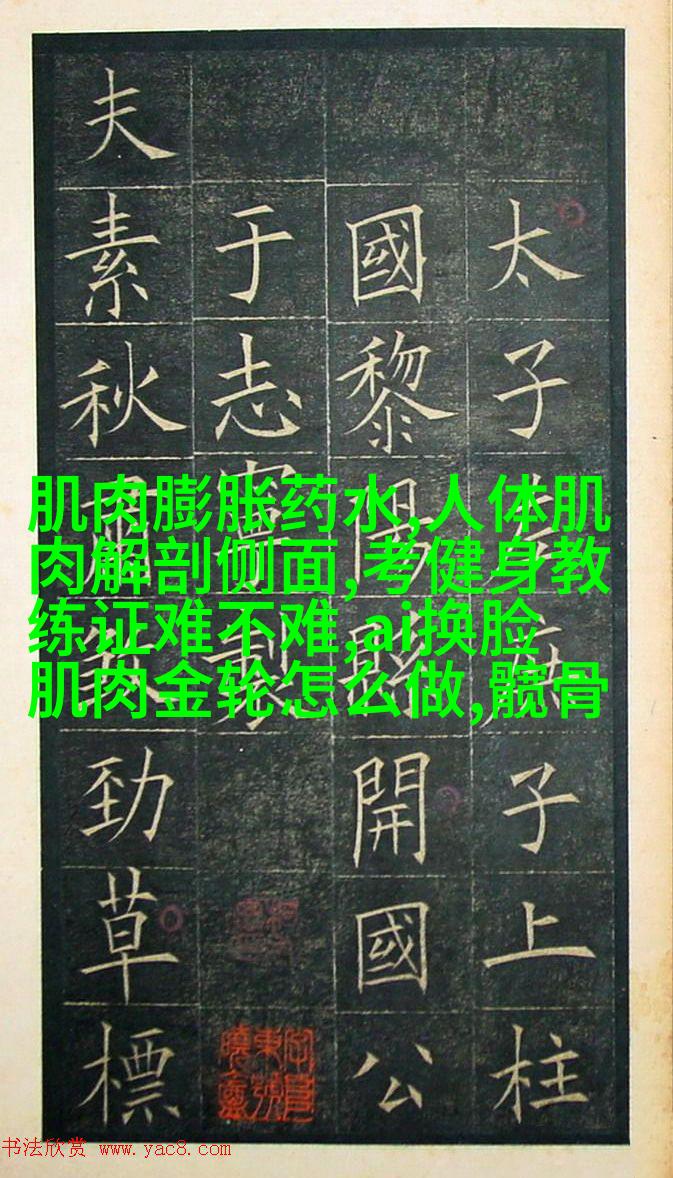 太子左庶子上柱
國黎陽縣開國公
于志寧製
夫素秋肅煞勁草標
肌肉膨胀药水,人体肌
肉解剖侧面,考健身教
练证难不难,ai换脸
肌肉金轮怎么做,髋骨
书法欣赏 www.yac8.com